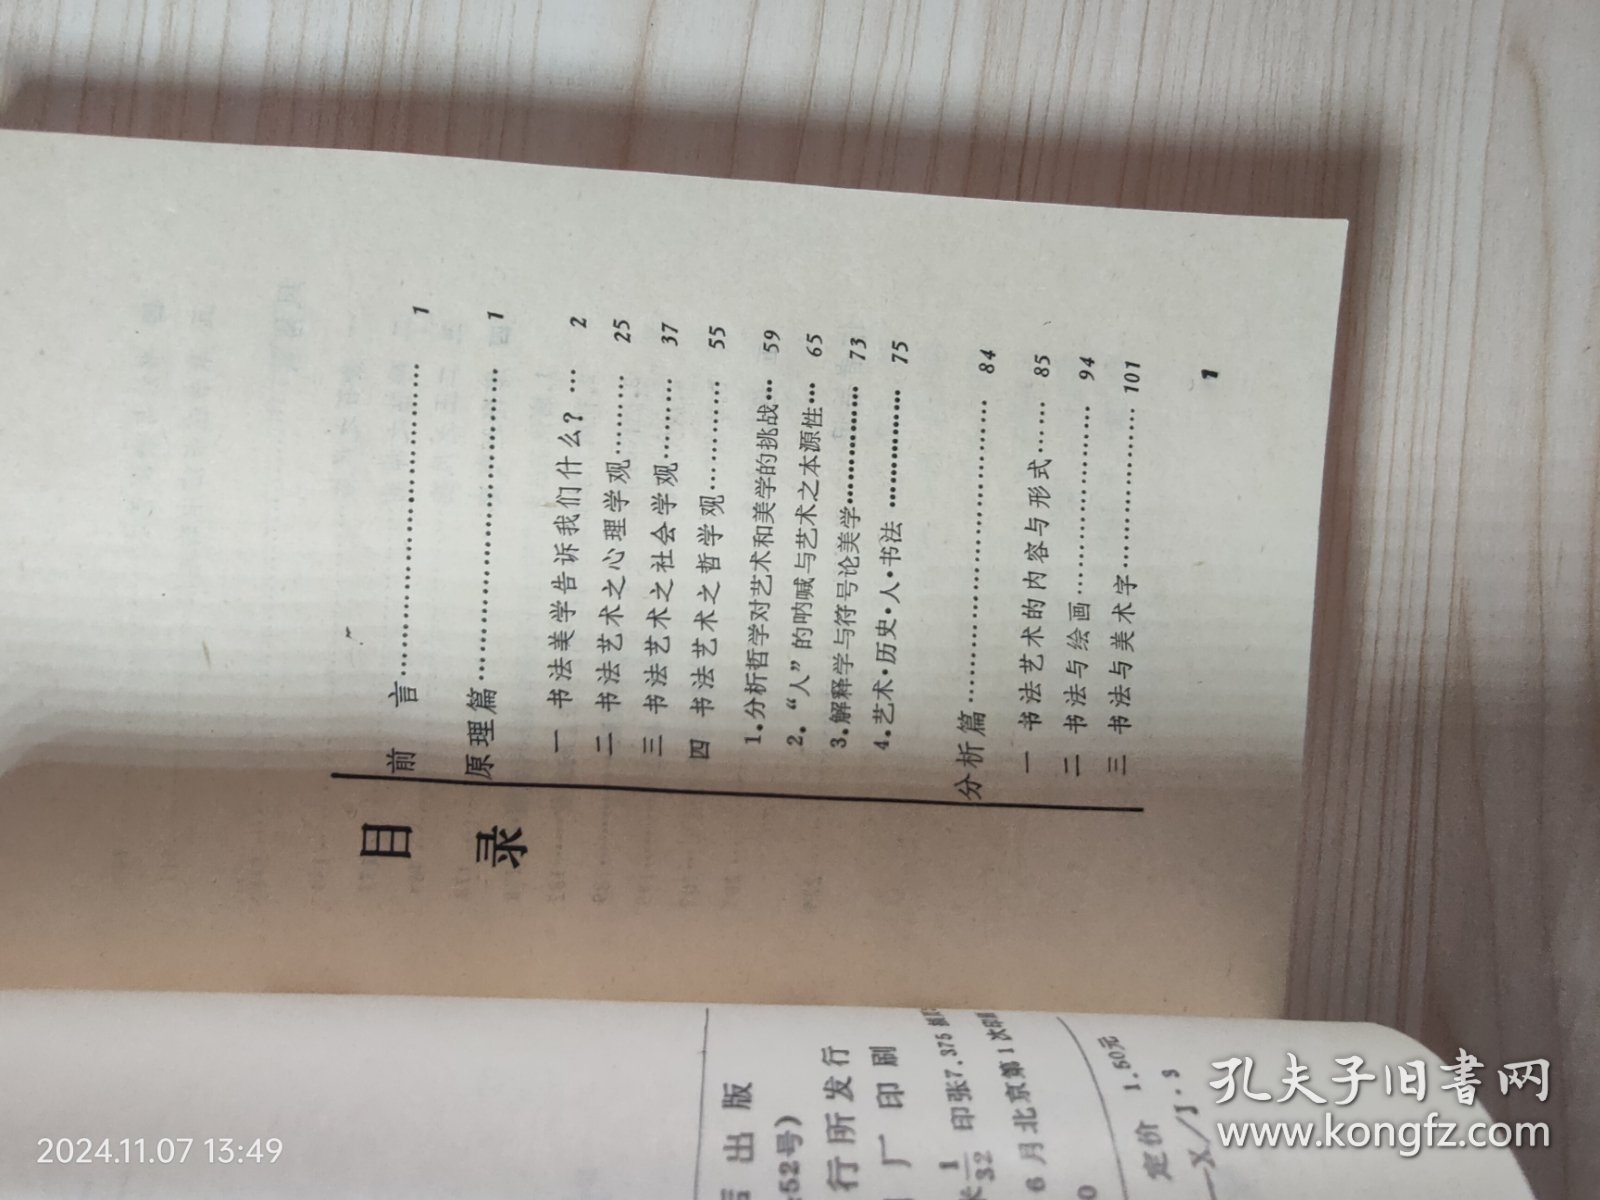 目录
前言……………………………1
原理篇……………………………1
一 书法美学告诉我们什么？…2
二 书法艺术之心理学观………25
三 书法艺术之社会学观………37
四 书法艺术之哲学观…………55
1.分析哲学对艺术和美学的挑战…59
2.“人”的呐喊与艺术之本源性…65
3.解释学与符号论美学…………73
4.艺术·历史·人·书法…………75
分析篇……………………………84
一 书法艺术的内容与形式……85
二 书法与绘画………………94
三 书法与美术字……………101
1
出版
52号)
行所发行
厂印刷
1/32 印张7.375
6月北京第1次印刷
0
定价 1.50元
—X/J·3
孔夫子旧书网
www.kongfz.com
2024.11.07 13:49